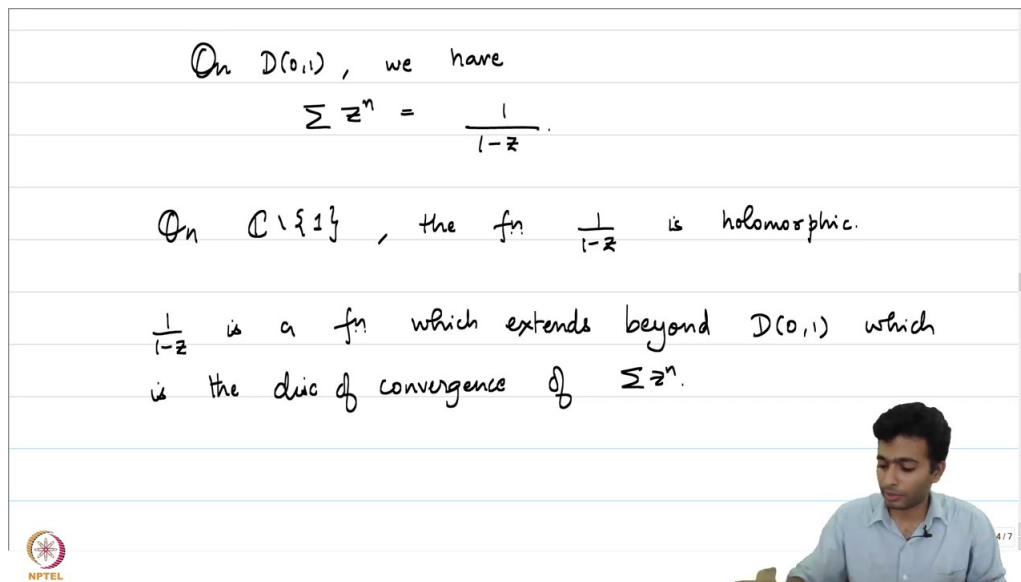 On D(0,1), we have
Σ zⁿ = 1/(1-z).
On ℂ\{1}, the fn 1/(1-z) is holomorphic.
1/(1-z) is a fn which extends beyond D(0,1) which
is the disc of convergence of Σ zⁿ.
4/7
NPTEL